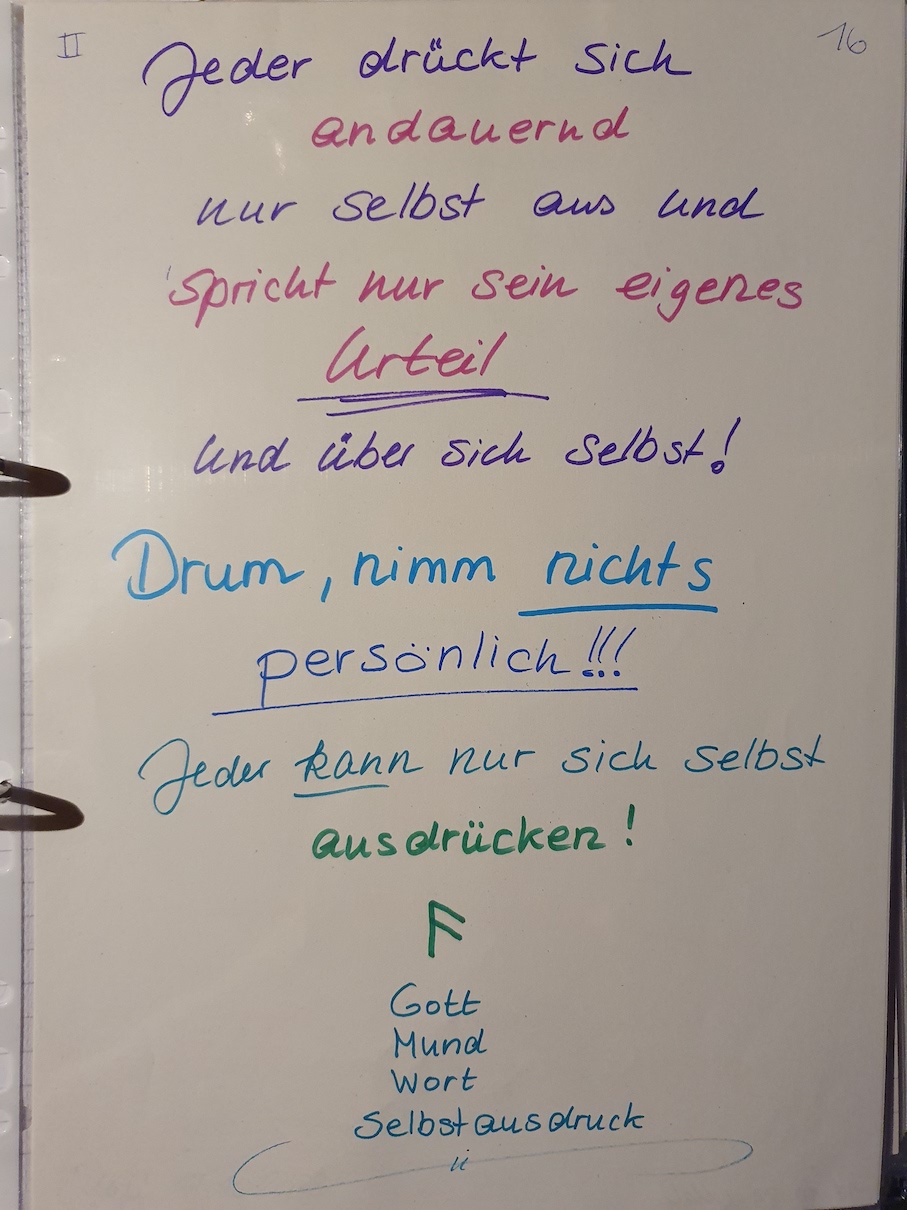 II
16
Jeder drückt sich
andauernd
nur selbst aus und
spricht nur sein eigenes
Urteil
und über sich selbst!
Drum, nimm nichts
persönlich!!!
Jeder kann nur sich selbst
ausdrücken!
ᚨ
Gott
Mund
Wort
Selbstausdruck